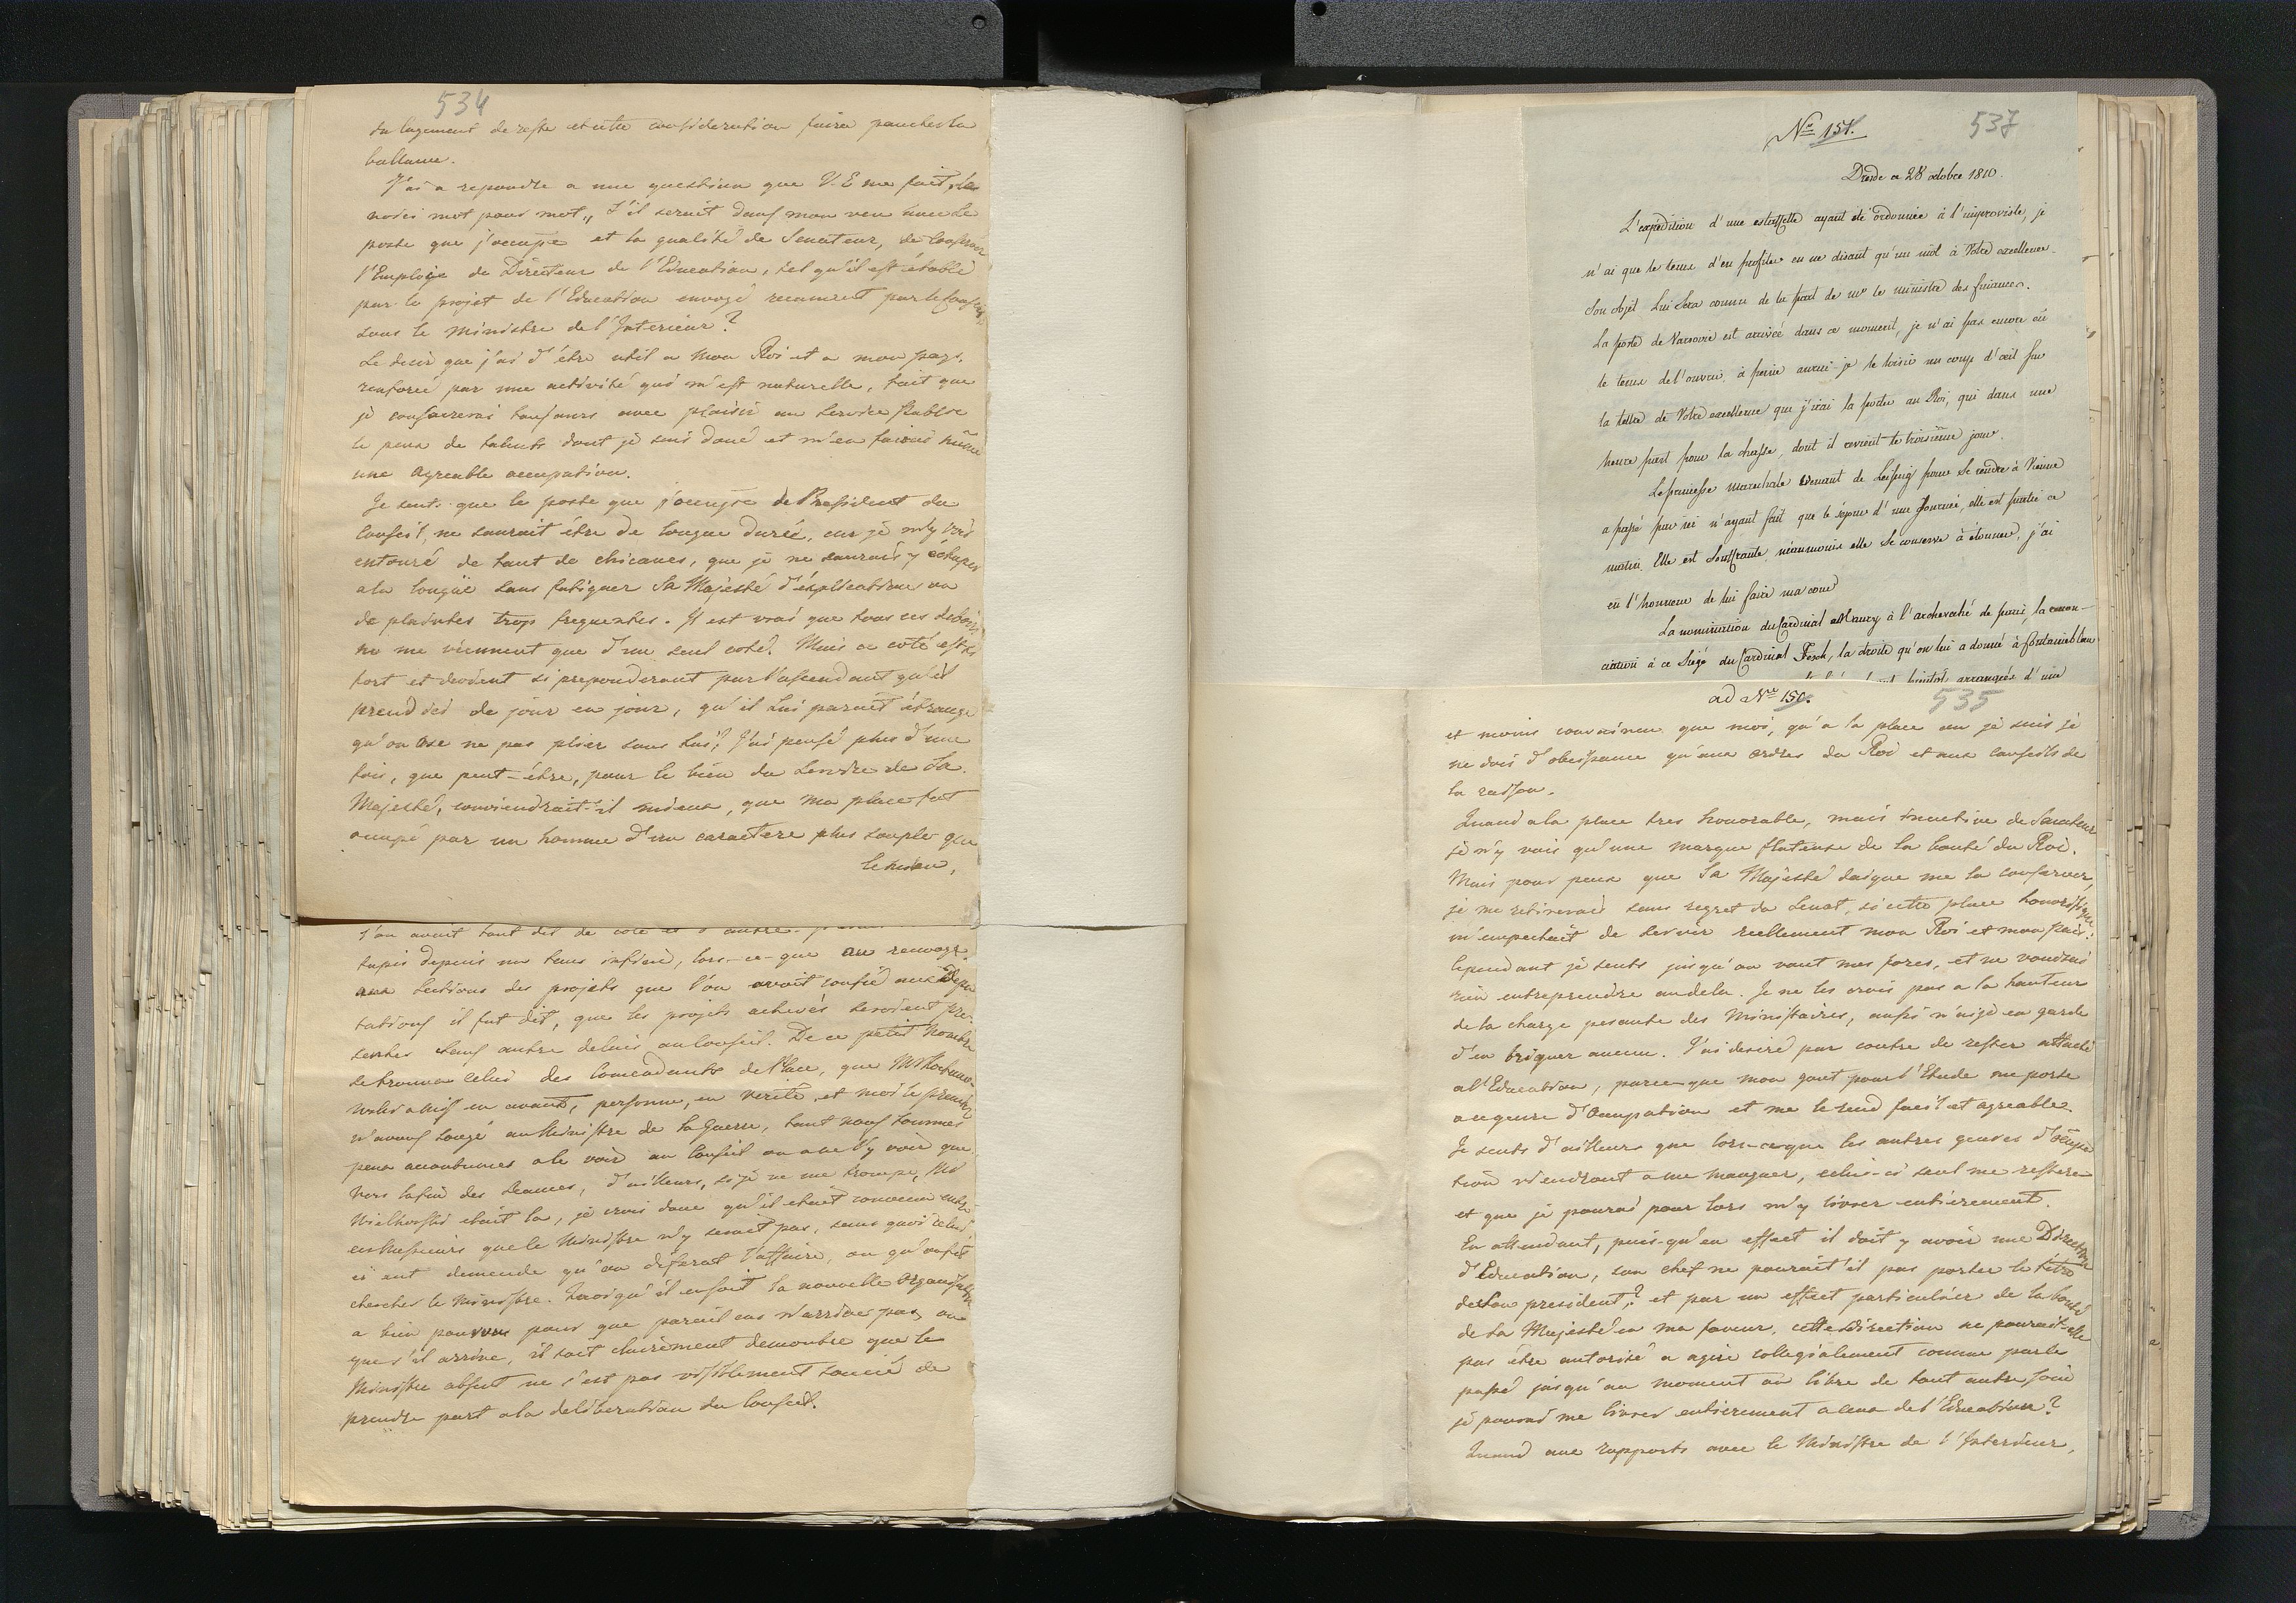 534
du lugement de reste et cette consideration faira pancher la
ballance.
J'ai a repondre a une question que V. E me fait, la
voici mot pour mot,, S'il serait dans mon veu avec le
poste que j'occupe et la qualité de Senateur, de conserver
l'Emploie de Directeur de l'Education, tel qu'il est établi
par le projet de l'Education envoyé recament par le Conseil,
sous le Ministre de l'Interieur?
Le desir que j'ai d'être util a mon Roi et a mon pays,
renforcé par une activité qui m'est naturelle, fait que
je consacrerai toujours avec plaisir au Service Publice
le peux de talents dont je suis doué et m'en fairai même
une agreable occupation.
Je sents que le poste que j'occupe de President du
Conseil, ne saurait être de longue durée, car je m'y vois
entouré de tant de chicanes, que je ne saurais y échaper
a la longue sans fatiguer Sa Majesté d'éxplications ou
de plaintes trop frequentes. Il est vrai que tous ces deboirs
ne me viennent que d'un seul coté. Mais ce coté est si
fort et devient si preponderant par l'ascendant qu'il
prend ici de jour en jour, qu'il lui parait étrange
qu'on ose ne pas plier sous lui? J'ai pensé plus d'une
fois, que peut-être, pour le bien du Service de Sa
Majesté, conviendrait-il mieux, que ma place fut
occupé par un homme d'un caractere plus souple que
le mien,
l'on avait tant dit de coté et d'autre
tapis depuis un tems infini, lors-ce-que au renvoye
aux Sections des projets que l'on avoit confié aux Depu
tations il fut dit, que les projets achevés seroient pre-
sentés sans autre delais au Conseil. De ce petit nombre
se trouva celui des Comendants de Place, que Mr Kochano-
wski a mis en avant, personne, en verité, et moi le premier
n'avons songé au Ministre de la Guerre, tant nous sommes
peux accoutumés a le voir au Conseil ou a ne l'y voir que
vers la fin des Seances, d'ailleurs, si je ne me trompe, Mr
Wielhorski était la, je crois donc qu'il etait convenu entre
ces Messieurs que le Ministre n'y serait pas, sans quoi celui
ci eut demendé qu'on differat l'affaire, ou qu'on fit
chercher le Ministre. Quoiqu'il en soit la nouvelle Organisation
a bien pourvus pour que pareil cas n'arrive pas, ou
que s'il arrive, il soit clairement demontré que le
Ministre absent ne s'est pas visiblement soucié de
prendre part a la deliberation du Conseil.
Nro 151. 537
Dresde ce 28 octobre 1810.
L'expédition d'une estaffette ayant été ordonnée à l'improviste, je
n'ai que le tems d'en profiter en ne disant qu'un mot à Votre excellence.
Son objet Lui Sera connu de la part de mr le ministre des finances.
La poste de Varsovie est arrivée dans ce moment, je n'ai pas encore eû
le tems de l'ouvrir, à peine aurai-je le loisir un coup d'œil sur
la lettre de Votre excellence que j'irai la porter au Roi, qui dans une
heure part pour la chasse, dont il revient le troisieme jour.
La princesse marechale venant de Leipzig pour Se rendre à Vienne
a passé par ici n'ayant fait que le séjour d'une journée, elle est partie ce
matin. Elle est Souffrante, néanmoins elle Se conserve à étonner, j'ai
eû l'honneur de lui faire ma cour
La nomination du Cardinal Maury à l'archevêché de paris, la renon-
ciation à ce Siège du Cardinal Fesch, la droite qu'on lui a donné à fontainebleau
bientôt arrangées d'une
ad Nro 150. 535
et moins convaincu que moi, qu'a la place ou je suis je
ne dois d'obeissance qu'aux ordres du Roi et aux conseils de
la raison.
Quand a la place tres honorable, mais inactive de Senateur
je n'y vois qu'une marque flateuse de la bonté du Roi.
Mais pour peux que Sa Majesté daigne me la conserver,
je me retirerais sans regret du Senat, si cette place honorifique
m'empechait de servir reellement mon Roi et mon païs.
Cependant je sents jusqu'ou vont mes forces, et ne voudrais
rien entreprendre audela. Je ne les crois pas a la hauteur
de la charge pesante des Ministaires, aussi n'aije en garde
d'en briguer aucun. J'ai desiré par contre de rester attaché
a l'Education, parce-que mon gout pour l'Etude me porte
au genre d'Occupation et me le rend facil et agreable.
Je sents d'ailleurs que lors-ceque les autres genres d'occupa
tion viendront a me manquer, celui-ci seul me restera
et que je pourai pour lors m'y livrer entierement.
En attendant, puis-qu'en effect il doit y avoir une Direction
d'Education, son chef ne pourait il pas porter le titre
de son president? et par un effect particulier de la bonté
de Sa Majesté en ma faveur, cette direction ne pourait-elle
pas être autorisé a agire collegialement comme par le
passé jusqu'au moment ou libre de tout autre soin
je pourai me livrer entierement a ceux de l'Education?
Quand aux rapports avec le Ministre de l'Interieur,